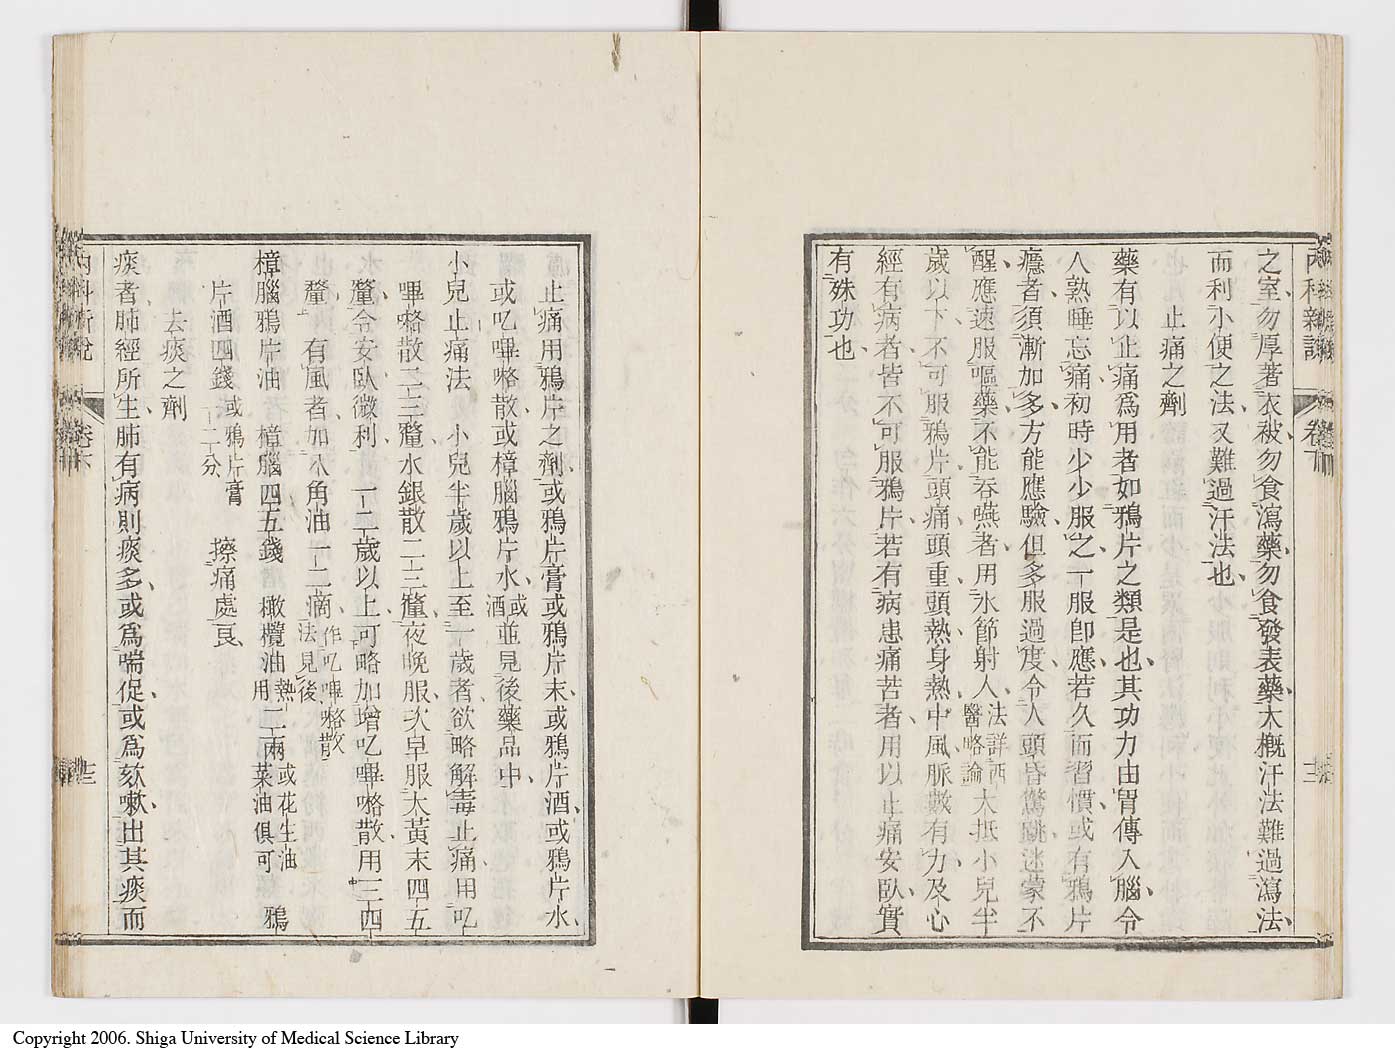 內科新說
卷下
十三
之室勿厚著衣被勿食瀉藥勿食發表藥大槪汗法難過瀉法
而利小便之法又難過汗法也
止痛之劑
藥有以止痛爲用者如鴉片之類是也其功力由胃傳入腦令
人熟睡忘痛初時少少服之一服卽應若久而習慣或有鴉片
癮者須漸加多方能應驗但多服過度令人頭昏驚跳迷蒙不
醒應速服嘔藥不能吞嚥者用水節射人法詳西醫略論大抵小兒半
歲以下不可服鴉片頭痛頭重頭熱身熱中風脈數有力及心
經有病者皆不可服鴉片若有病患痛苦者用以止痛安臥實
有殊功也
止痛用鴉片之劑或鴉片膏或鴉片末或鴉片酒或鴉片水
或叱嗶咯散或樟腦鴉片水或酒並見後藥品中
小兒止痛法 小兒半歲以上至一歲者欲略解毒止痛用叱
嗶咯散二三釐水銀散二三釐夜晚服次早服大黃末四五
釐令安臥微利 一二歲以上可略加增叱嗶咯散用三四
釐 有風者加水角油一二滴作叱嗶咯散法見後
樟腦鴉片油 樟腦四五錢 橄欖油熱用二兩或花生油菜油俱可 鴉
片酒四錢或鴉片膏一二十分 擦痛處良
去痰之劑
痰者肺經所生肺有病則痰多或爲喘促或爲欬嗽出其痰而
內科新說
卷下
十三
Copyright 2006. Shiga University of Medical Science Library